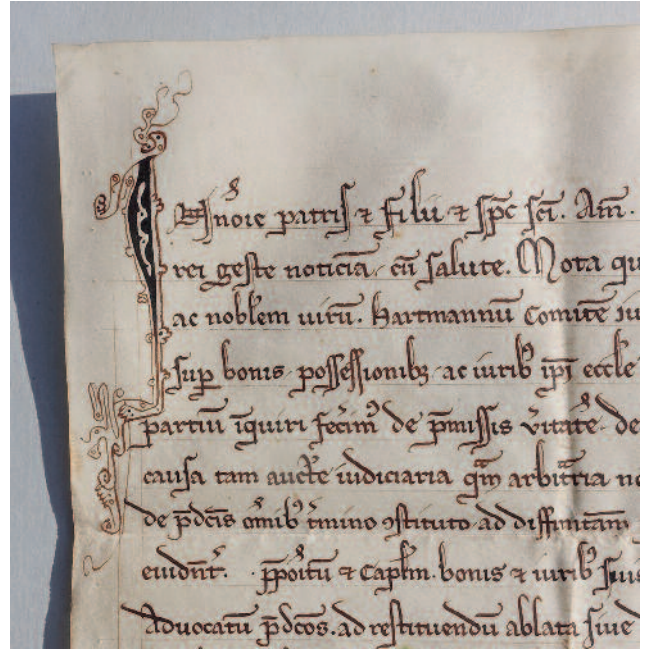 In noīe patris ⁊ filii ⁊ sp̄c sc̄i. Am̄.
rei geste noticiā cū salute. Mota qu
ac nobl̄em uirū. hartmannū Comitē iu
sup bonis possessionibꝫ ac iurib ip̄i eccl̄e
partiū īquiri fecīm de p̄missis ūitatē de
causa tam auctt̄e iudiciaria qm̄ arbit̄ria no
de p̄dcīs om̄ib t̄mino ꝯstituto ad diffinitām
euidn̄t. p̄poitū ⁊ Capl̄m. bonis ⁊ iurib suis
Aduocatū p̄dcōs. ad restituendū ablata siue